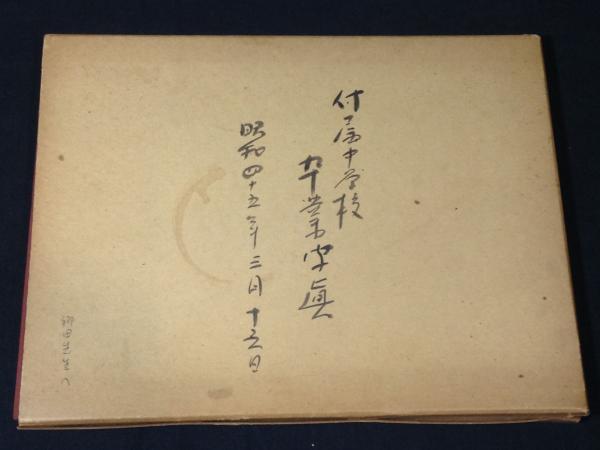 付属中学校
卒業写真
昭和四十五年三月十五日